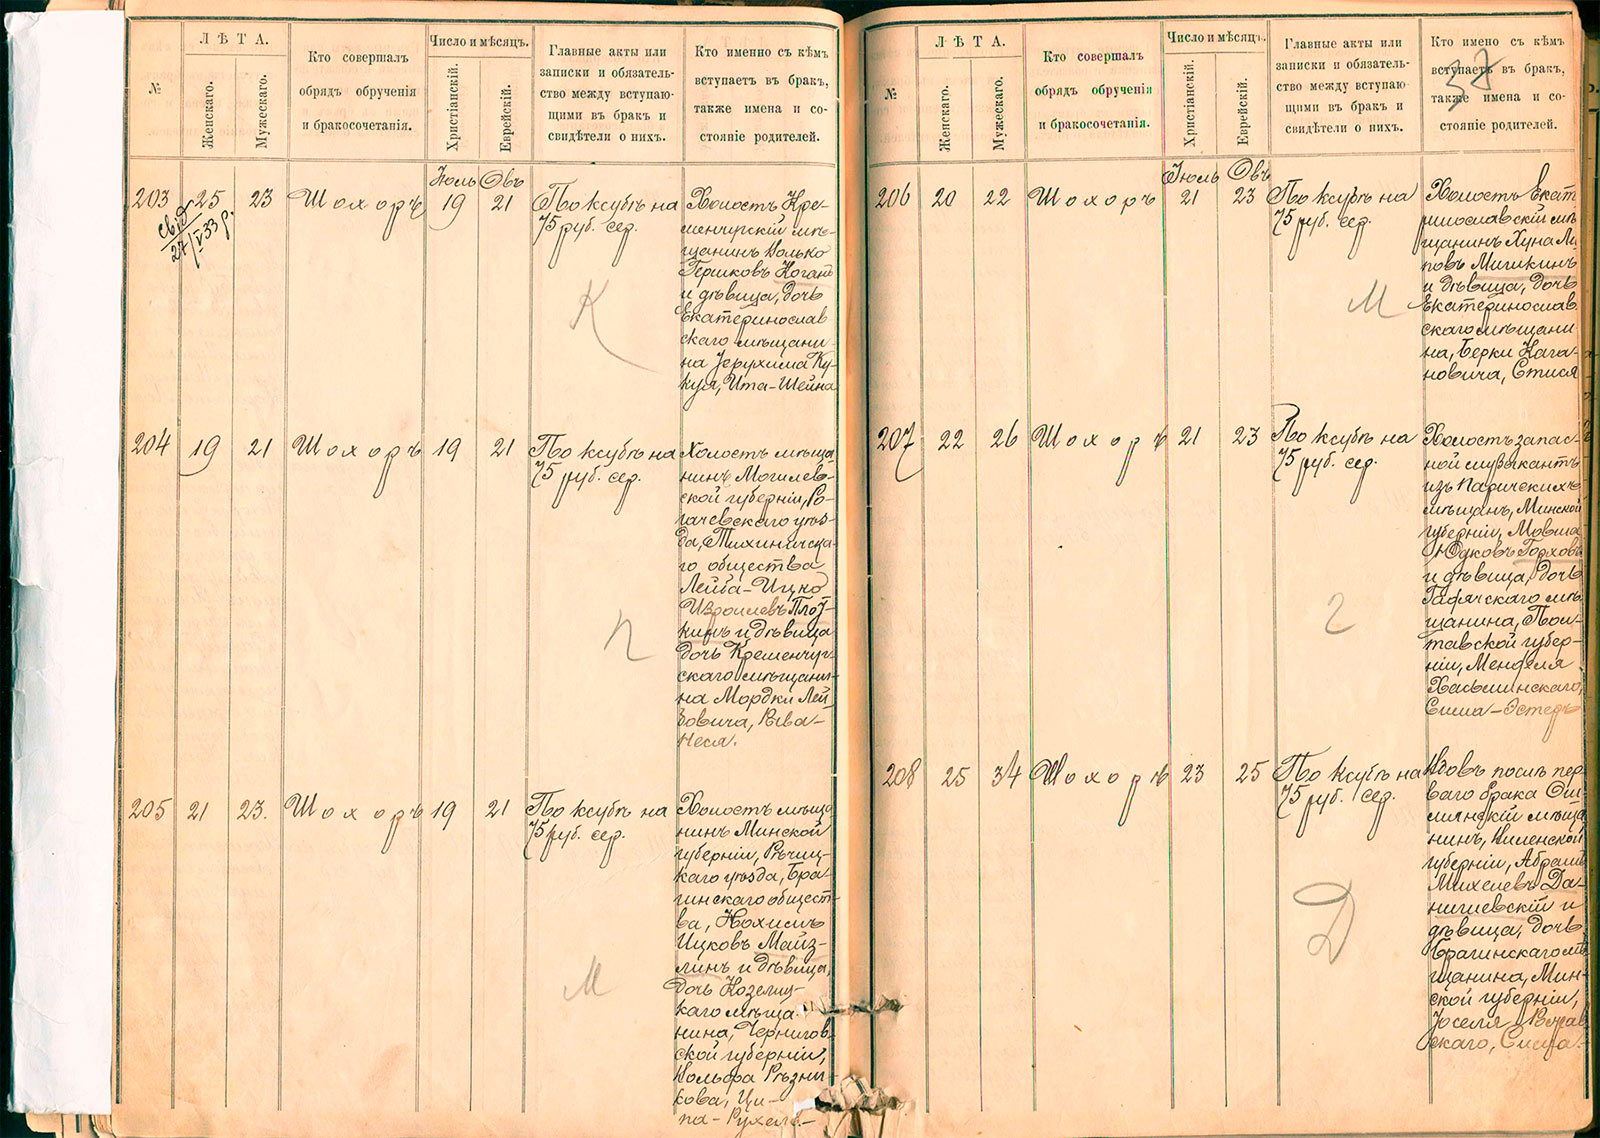 №
ЛѢТА.
Женскаго.
Мужескаго.
Кто совершалъ
обрядъ обрученія
и бракосочетанія.
Число и мѣсяцъ.
Христіанскій.
Еврейскій.
Главные акты или
записки и обязатель-
ство между вступаю-
щими въ бракъ и
свидѣтели о нихъ.
Кто именно съ кѣмъ
вступаетъ въ бракъ,
также имена и со-
стояніе родителей.
Іюль Овъ
203 25 23 Шохоръ 19 21
свід
27/V 33 р.
По ксубѣ на
75 руб. сер.
К
Холостъ Кре-
менчугскій мѣ-
щанинъ Волько
Гершковъ Коганъ
и дѣвица, дочь
Екатеринослав
скаго мѣщани-
на Іерухима Ку-
куя, Ита-Шейна
204 19 21 Шохоръ 19 21
По ксубѣ на
75 руб. сер.
П
Холостъ мѣща
нинъ Могилев-
ской губерніи, Ро-
гачевскаго уѣз-
да, Тихиничска-
го общества
Лейба-Ицко
Изроилевъ Плот-
кинъ и дѣвица
дочь Кременчуг-
скаго мѣщани-
на Мордки Лей
бовича, Рива-
Неся.
205 21 23. Шохоръ 19 21
По ксубѣ на
75 руб. сер.
М
Холостъ мѣща
нинъ Минской
губерніи, Рѣчиц-
каго уѣзда, Бра-
гинскаго общест-
ва, Нохимъ
Ицковъ Майз-
линъ и дѣвица,
дочь Козелец-
каго мѣща-
нина, Чернигов-
ской губерніи,
Вольфа Рѣзни-
кова, Ци-
па-Рухель.-
37
№
ЛѢТА.
Женскаго.
Мужескаго.
Кто совершалъ
обрядъ обрученія
и бракосочетанія.
Число и мѣсяцъ.
Христіанскій.
Еврейскій.
Главные акты или
записки и обязатель-
ство между вступаю-
щими въ бракъ и
свидѣтели о нихъ.
Кто имено съ кѣмъ
вступаетъ въ бракъ,
также имена и со-
стояніе родителей.
Іюль Овъ
206 20 22 Шохоръ 21 23
По ксубѣ на
75 руб. сер.
М
Холостъ Екате
ринославскій мѣ
щанинъ Хуна Ли
повъ Мишкинъ
и дѣвица, дочь
Екатеринослав
скаго мѣщани
на, Берки Кага-
новича, Стися
207 22 26 Шохоръ 21 23
По ксубѣ на
75 руб. сер.
Г
Холостъ запас-
ной музыкантъ
изъ Паричскихъ
мѣщанъ, Минской
губерніи, Мовша
Юдковъ Горховъ
и дѣвица, дочь
Гадячскаго мѣ
щанина, Пол-
тавской губер-
ніи, Менделя
Хасьминскаго,
Сима-Эстеръ
208 25 34 Шохоръ 23 25
По ксубѣ на
75 руб. сер.
Д
Вдовъ послѣ пер
ваго брака Ош-
мянскій мѣща
нинъ, Виленской
губерніи, Абрамъ
Михелевъ Да-
нишевскій и
дѣвица, дочь
Брагинскаго мѣ
щанина, Мин-
ской губерніи,
Іоселя
скаго, Сима.-